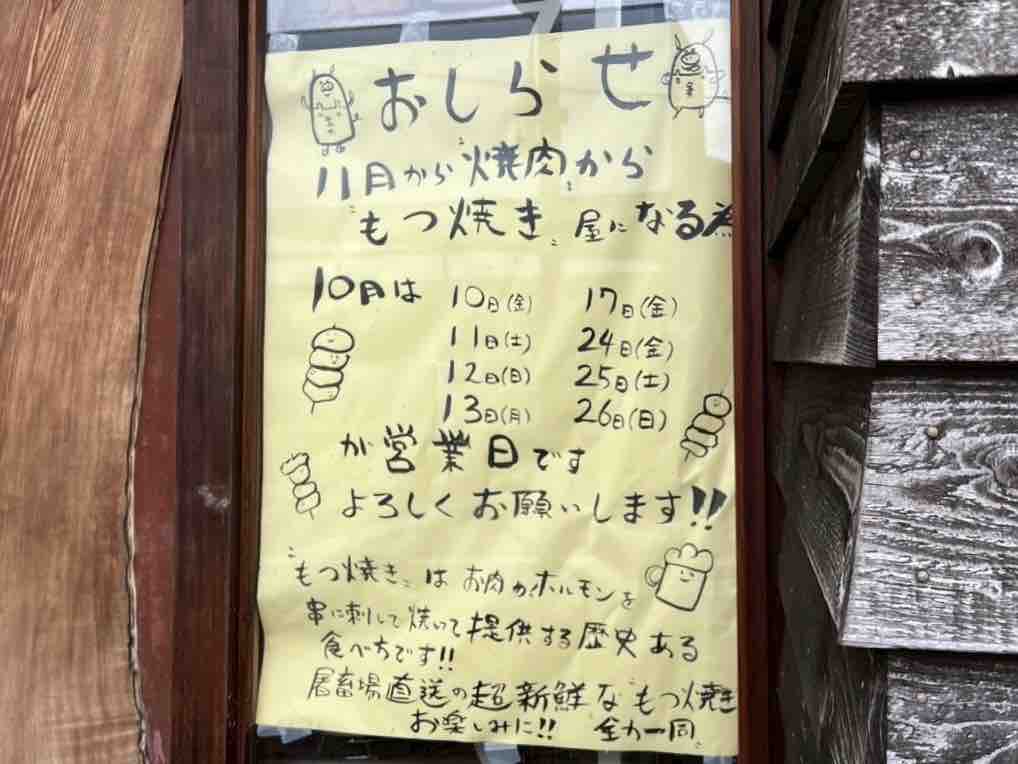 おしらせ
11月から"焼肉"から
"もつ焼き"屋になる為
10月は
10日(金) 17日(金)
11日(土) 24日(金)
12日(日) 25日(土)
13日(月) 26日(日)
が営業日です
よろしくお願いします!!
"もつ焼き"は お肉かホルモンを
串に刺して焼いて提供する歴史ある
食べ方です!!
屠畜場直送の超新鮮な"もつ焼き"
お楽しみに!! 全力一同